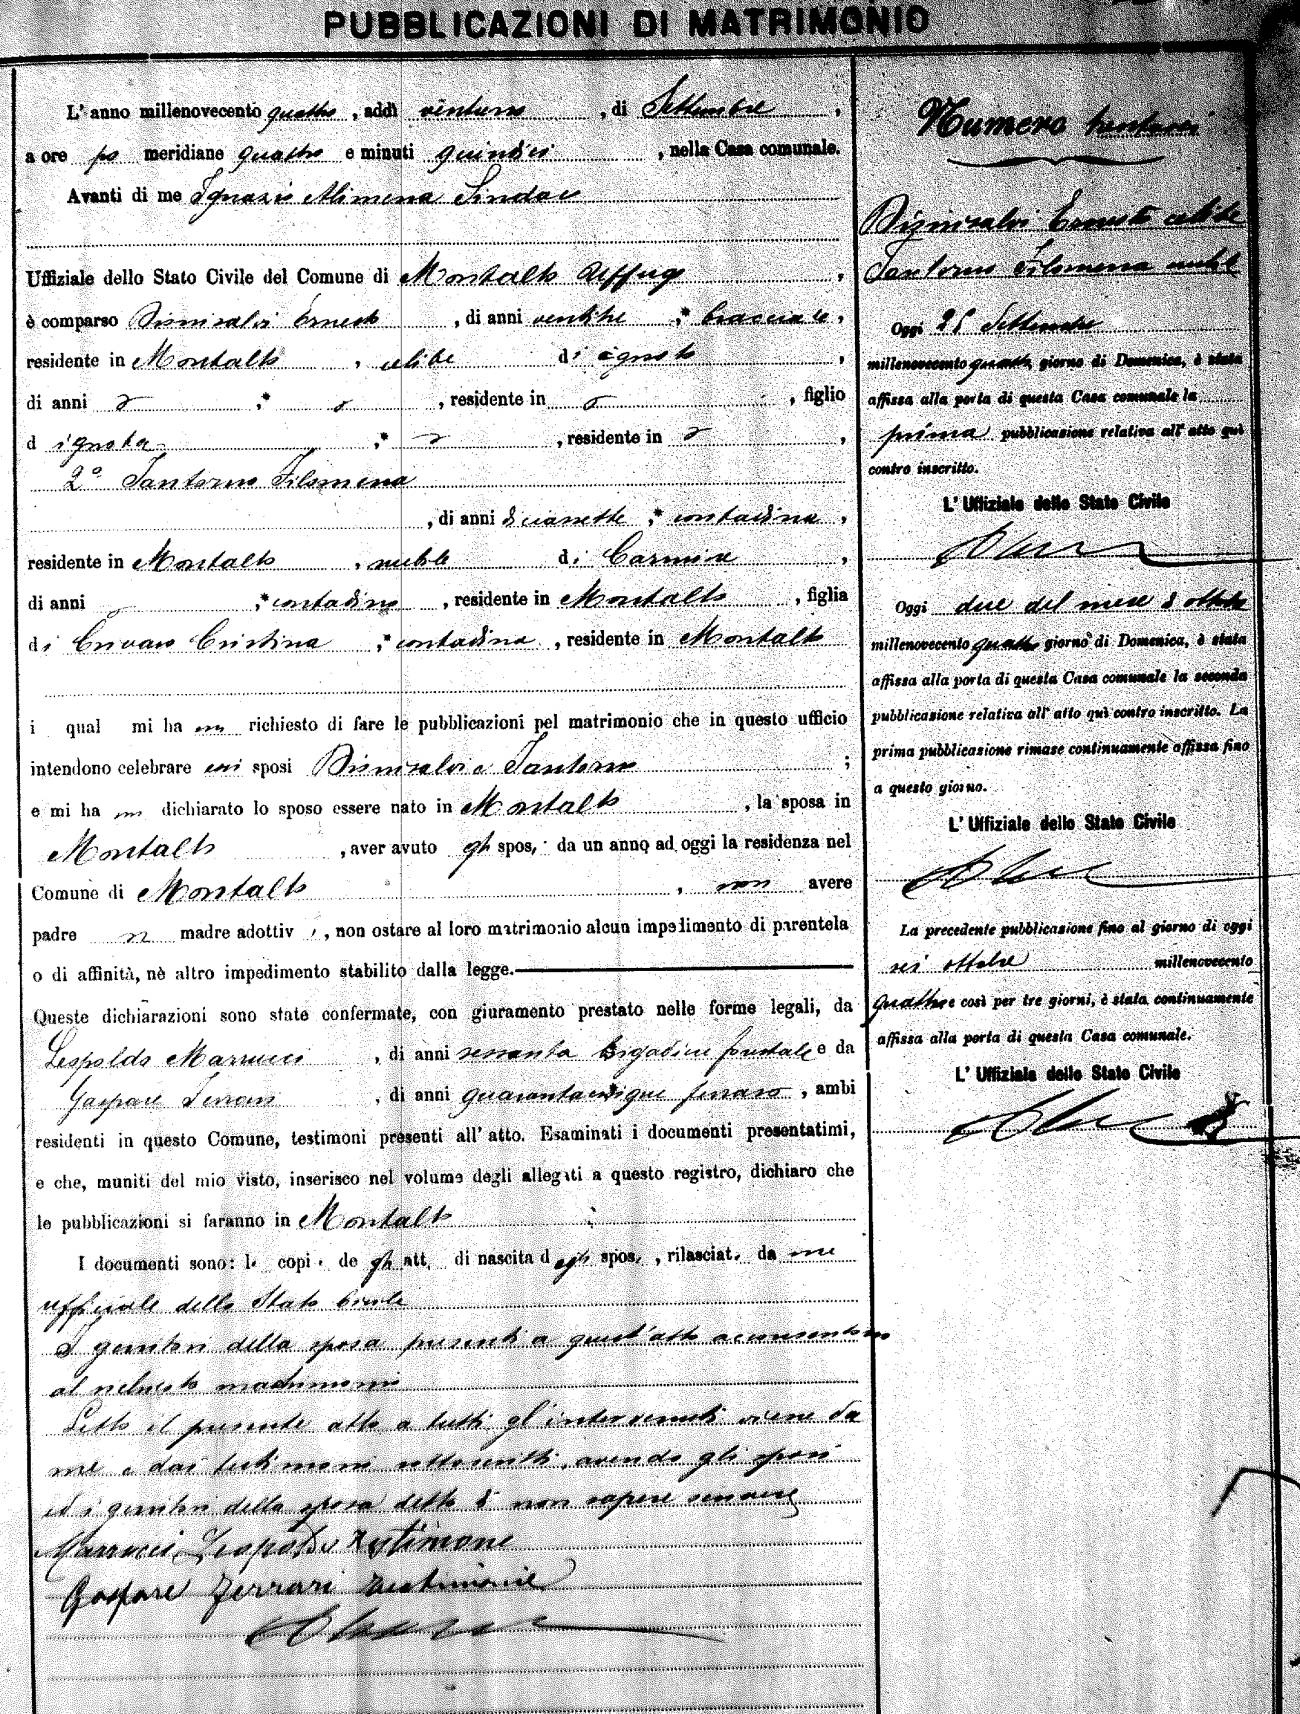 PUBBLICAZIONI DI MATRIMONIO
L' anno millenovecento quattro, addì ventuno, di Settembre,
a ore po meridiane quattro e minuti quindici, nella Casa comunale.
Avanti di me Ignazio Alimena Sindaco
Uffiziale dello Stato Civile del Comune di Montalto Uffugo,
è comparso Ernesto, di anni ventitre, bracciale,
residente in Montalto, celibe di ignoto,
di anni , residente in , figlio
d ignota, residente in ,
2º Santoro Filomena
, di anni diciassette, contadina,
residente in Montalto, nubile di Carmine,
di anni , contadino, residente in Montalto, figlia
di Crivaro Cristina, contadina, residente in Montalto
i qual mi ha nno richiesto di fare le pubblicazioni pel matrimonio che in questo ufficio
intendono celebrare essi sposi e Santoro ;
e mi ha nno dichiarato lo sposo essere nato in Montalto, la sposa in
Montalto, aver avuto gli spos i da un anno ad oggi la residenza nel
Comune di Montalto, non avere
padre n madre adottiv i, non ostare al loro matrimonio alcun impedimento di parentela
o di affinità, nè altro impedimento stabilito dalla legge.
Queste dichiarazioni sono state confermate, con giuramento prestato nelle forme legali, da
Leopoldo Marrucci, di anni sessanta brigadiere forestale e da
Gaspare Ferrari, di anni quarantacinque ferraro, ambi
residenti in questo Comune, testimoni presenti all' atto. Esaminati i documenti presentatimi,
e che, muniti del mio visto, inserisco nel volume degli allegati a questo registro, dichiaro che
le pubblicazioni si faranno in Montalto
I documenti sono: le copie de gli att i di nascita d egli spos i, rilasciat e da me
ufficiale dello Stato Civile
I genitori della sposa presenti a quest'atto acconsentono
al richiesto matrimonio
Letto il presente atto a tutti gl'intervenuti viene da
me e dai testimoni sottoscritto, avendo gli sposi
ed i genitori della sposa detto di non sapere scrivere
Marrucci Leopoldo Testimone
Gaspare Ferrari testimonie
Numero
Ernesto celibe
Santoro Filomena nubile
Oggi 25 Settembre
millenovecento quattro, giorno di Domenica, è stata
affissa alla porta di questa Casa comunale la
prima pubblicazione relativa all' atto quì
contro inscritto.
L' Uffiziale dello Stato Civile
Oggi due del mese d ottobre
millenovecento quattro giorno di Domenica, è stata
affissa alla porta di questa Casa comunale la seconda
pubblicazione relativa all' atto quì contro inscritto. La
prima pubblicazione rimase continuamente affissa fino
a questo giorno.
L' Uffiziale dello Stato Civile
La precedente pubblicazione fino al giorno di oggi
sei ottobre millenovecento
quattro e così per tre giorni, è stata continuamente
affissa alla porta di questa Casa comunale.
L' Uffiziale dello Stato Civile